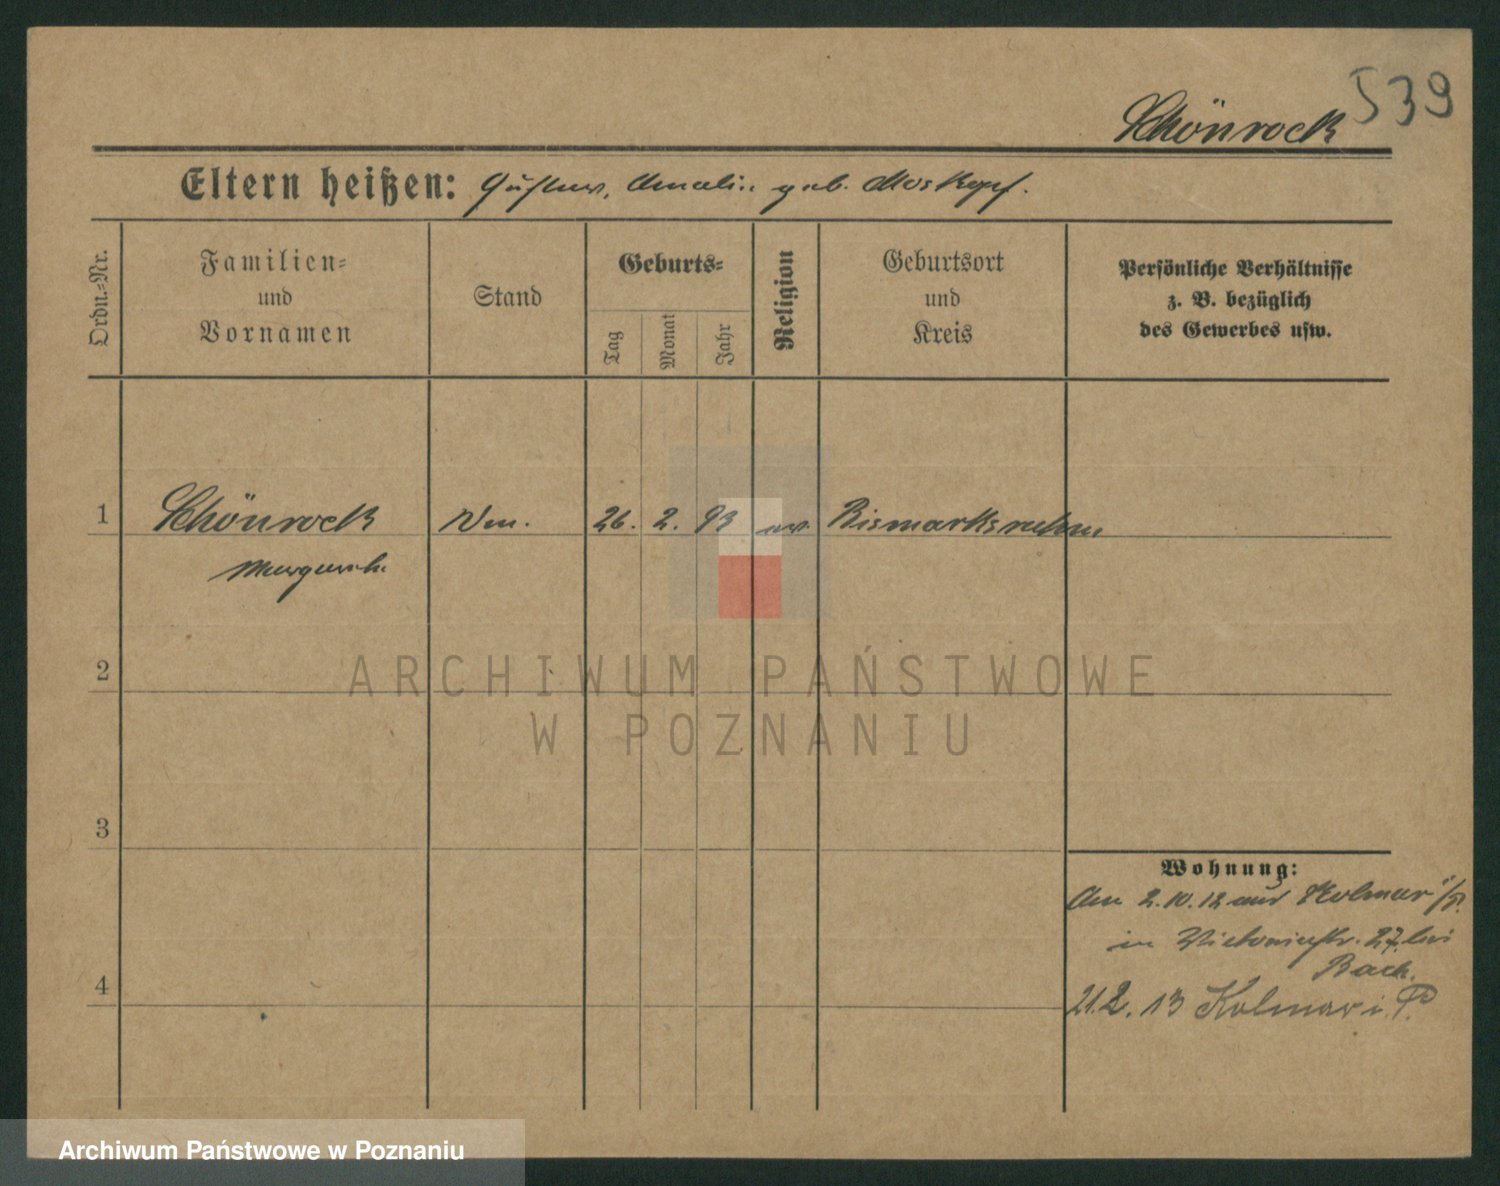 539
Schönrock
Eltern heißen: Gustav, Amalie geb. Moskopf.
Ordn.-Nr.
Familien-
und
Vornamen
Stand
Geburts-
Tag
Monat
Jahr
Religion
Geburtsort
und
Kreis
Persönliche Verhältnisse
z. B. bezüglich
des Gewerbes usw.
1 Schönrock 26. 2. 93 ev. Bismarksruhm
Margareth.
2
3
4
Wohnung:
Am 2.10.12 aus Kolmar i/P.
in Victoriastr. 27. bei
Bach.
21.2.13 Kolmar i. P.
ARCHIWUM PAŃSTWOWE
W POZNANIU
Archiwum Państwowe w Poznaniu